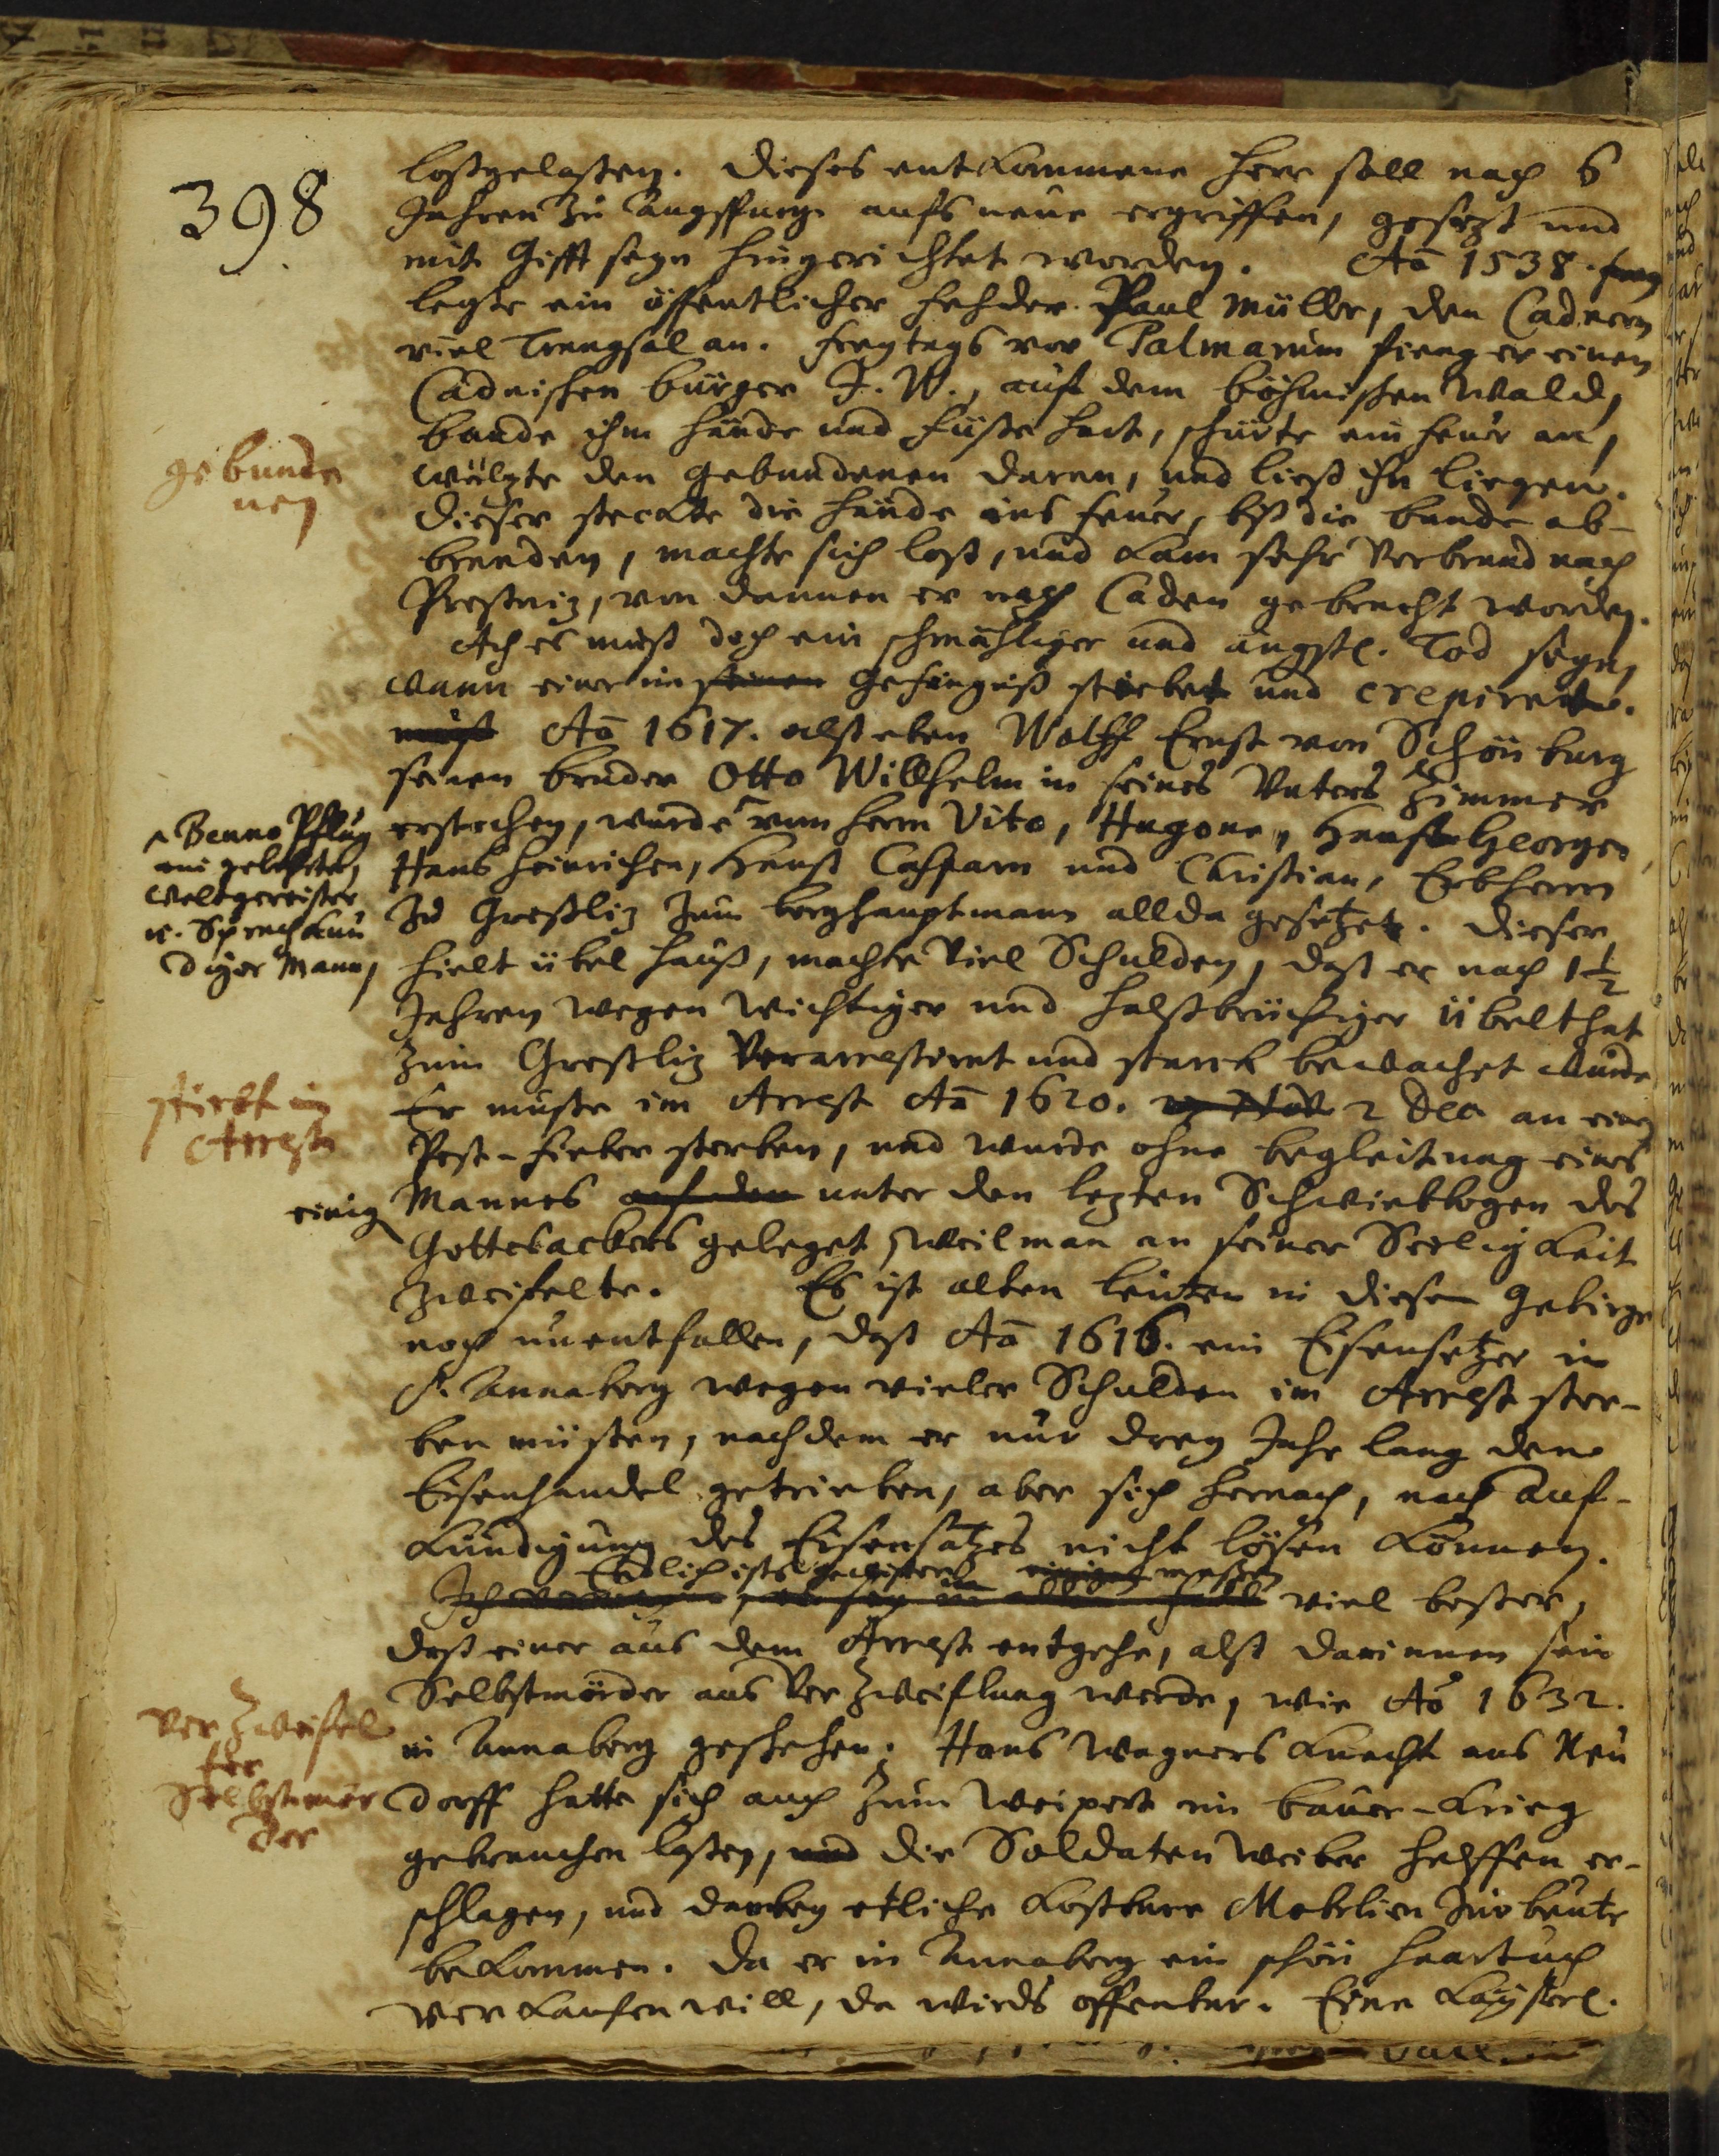 398
loßgelaßen. Dieser entkommene Herr soll nach 6
Jahren zu Augspurg aufs neue ergriffen, gesezt und
mit Gifft seyn hingerichtet worden. Aõ 1538.
legte ein öffentlicher Fehder Paul Müller, den Cadnern
viel Trangsal an. Freytags vor Palmarum fieng er einen
Cadnischen bürger J. W., auf dem böhmischen Wald,
bande ihm Hände und Füße hart, schürte ein Feuer an,
gebunde
nen
welzte den gebundenen daran, und ließ ihn liegen.
Dieser steckte die Hände ins Feuer, biß die bande ab-
branden, machte sich loß, und kam sehr verbrand nach
Preßniz, von dannen er nach Caden gebracht worden.
Ach es muß doch ein schmähliger und ängstl. Tod seyn,
wann einer im seinen Gefängniß stirbet und crepiret.
muß Aõ 1617. alß eben Wolff Ernst von Schönburg
seinen bruder Otto Willhelm in seines Vaters Zimmer
erstochen, wurde von Herrn Vito, Hugone, Hanß Georgen
^ Benno Pflug
ein gelehrter,
weltgereister
u. Sprachkün
diger Mann,
Hans Heinrichen, Hanß Casparn und Christian, Erbherrn
zu Greßliz zum berghauptmann allda gesetzet. Dieser
hielt übel Hauß, machte viel Schulden, daß er nach 1½
Jahren wegen wichtiger und halßbrüchiger übelthat
zum Greßliz verarrestiret und starck bewachet wurde
stirbt im
Arrest
Er muste im Arrest Aõ 1620. 2 Dec. an einem
Pest-Fieber sterben, und wurde ohne begleitung eines
einig
Mannes auf den unter den lezten Schwiebbogen des
Gottesackers geleget, weil man an seiner Seeligkeit
zweifelte. Es ist alten Leuten in diesem Gebirge
noch unentfallen, daß Aõ 1616. ein Eisensetzer in
S. Annaberg wegen vieler Schulden im Arrest ster-
ben müsten, nachdem er nur drey Jahr lang den
Eisenhandel getrieben, aber sich hernach, nach Auf-
kündigung des Eisensatzes nicht lösen können.
Endlich ists maßen
Ich viel beßer,
daß einer aus dem Arrest entgehe, alß darinnen sein
Selbstmörder aus Verzweiflung werde, wie Aõ 1632.
Verzweifel
ter
Selbstmör
der
in Annaberg geschehen; Hans Wagners Knecht aus Neu
dorff hatte sich auch zum Weipert im bauer-Krieg
gebrauchen laßen, und die Soldaten Weiber helffen er-
schlagen, und darbey etliche kostbare Mobilien zur beute
bekommen. Da er in Annaberg ein schön Haartuch
verkaufen will, da wirds offenbar. Eine Kayserl.